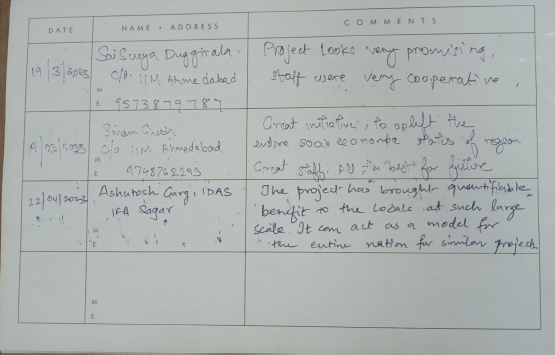 DATE NAME • ADDRESS COMMENTS
19/3/2023
Sai Surya Duggirala
C/o. IIM Ahmedabad
M
E. 9573879787
Project looks very promising,
staff were very cooperative.
C/o IIM Ahmedabad
M
E 9748762293
Great initiative, to uplift the
entire socio economic status of region
Great staff. All the best for future
22/04/2023
Ashutosh Garg, IDAS
IFA Sagar
M
E
The project has brought quantifiable
benefit to the locals at such large
scale. It can act as a model for
the entire nation for similar projects
M
E